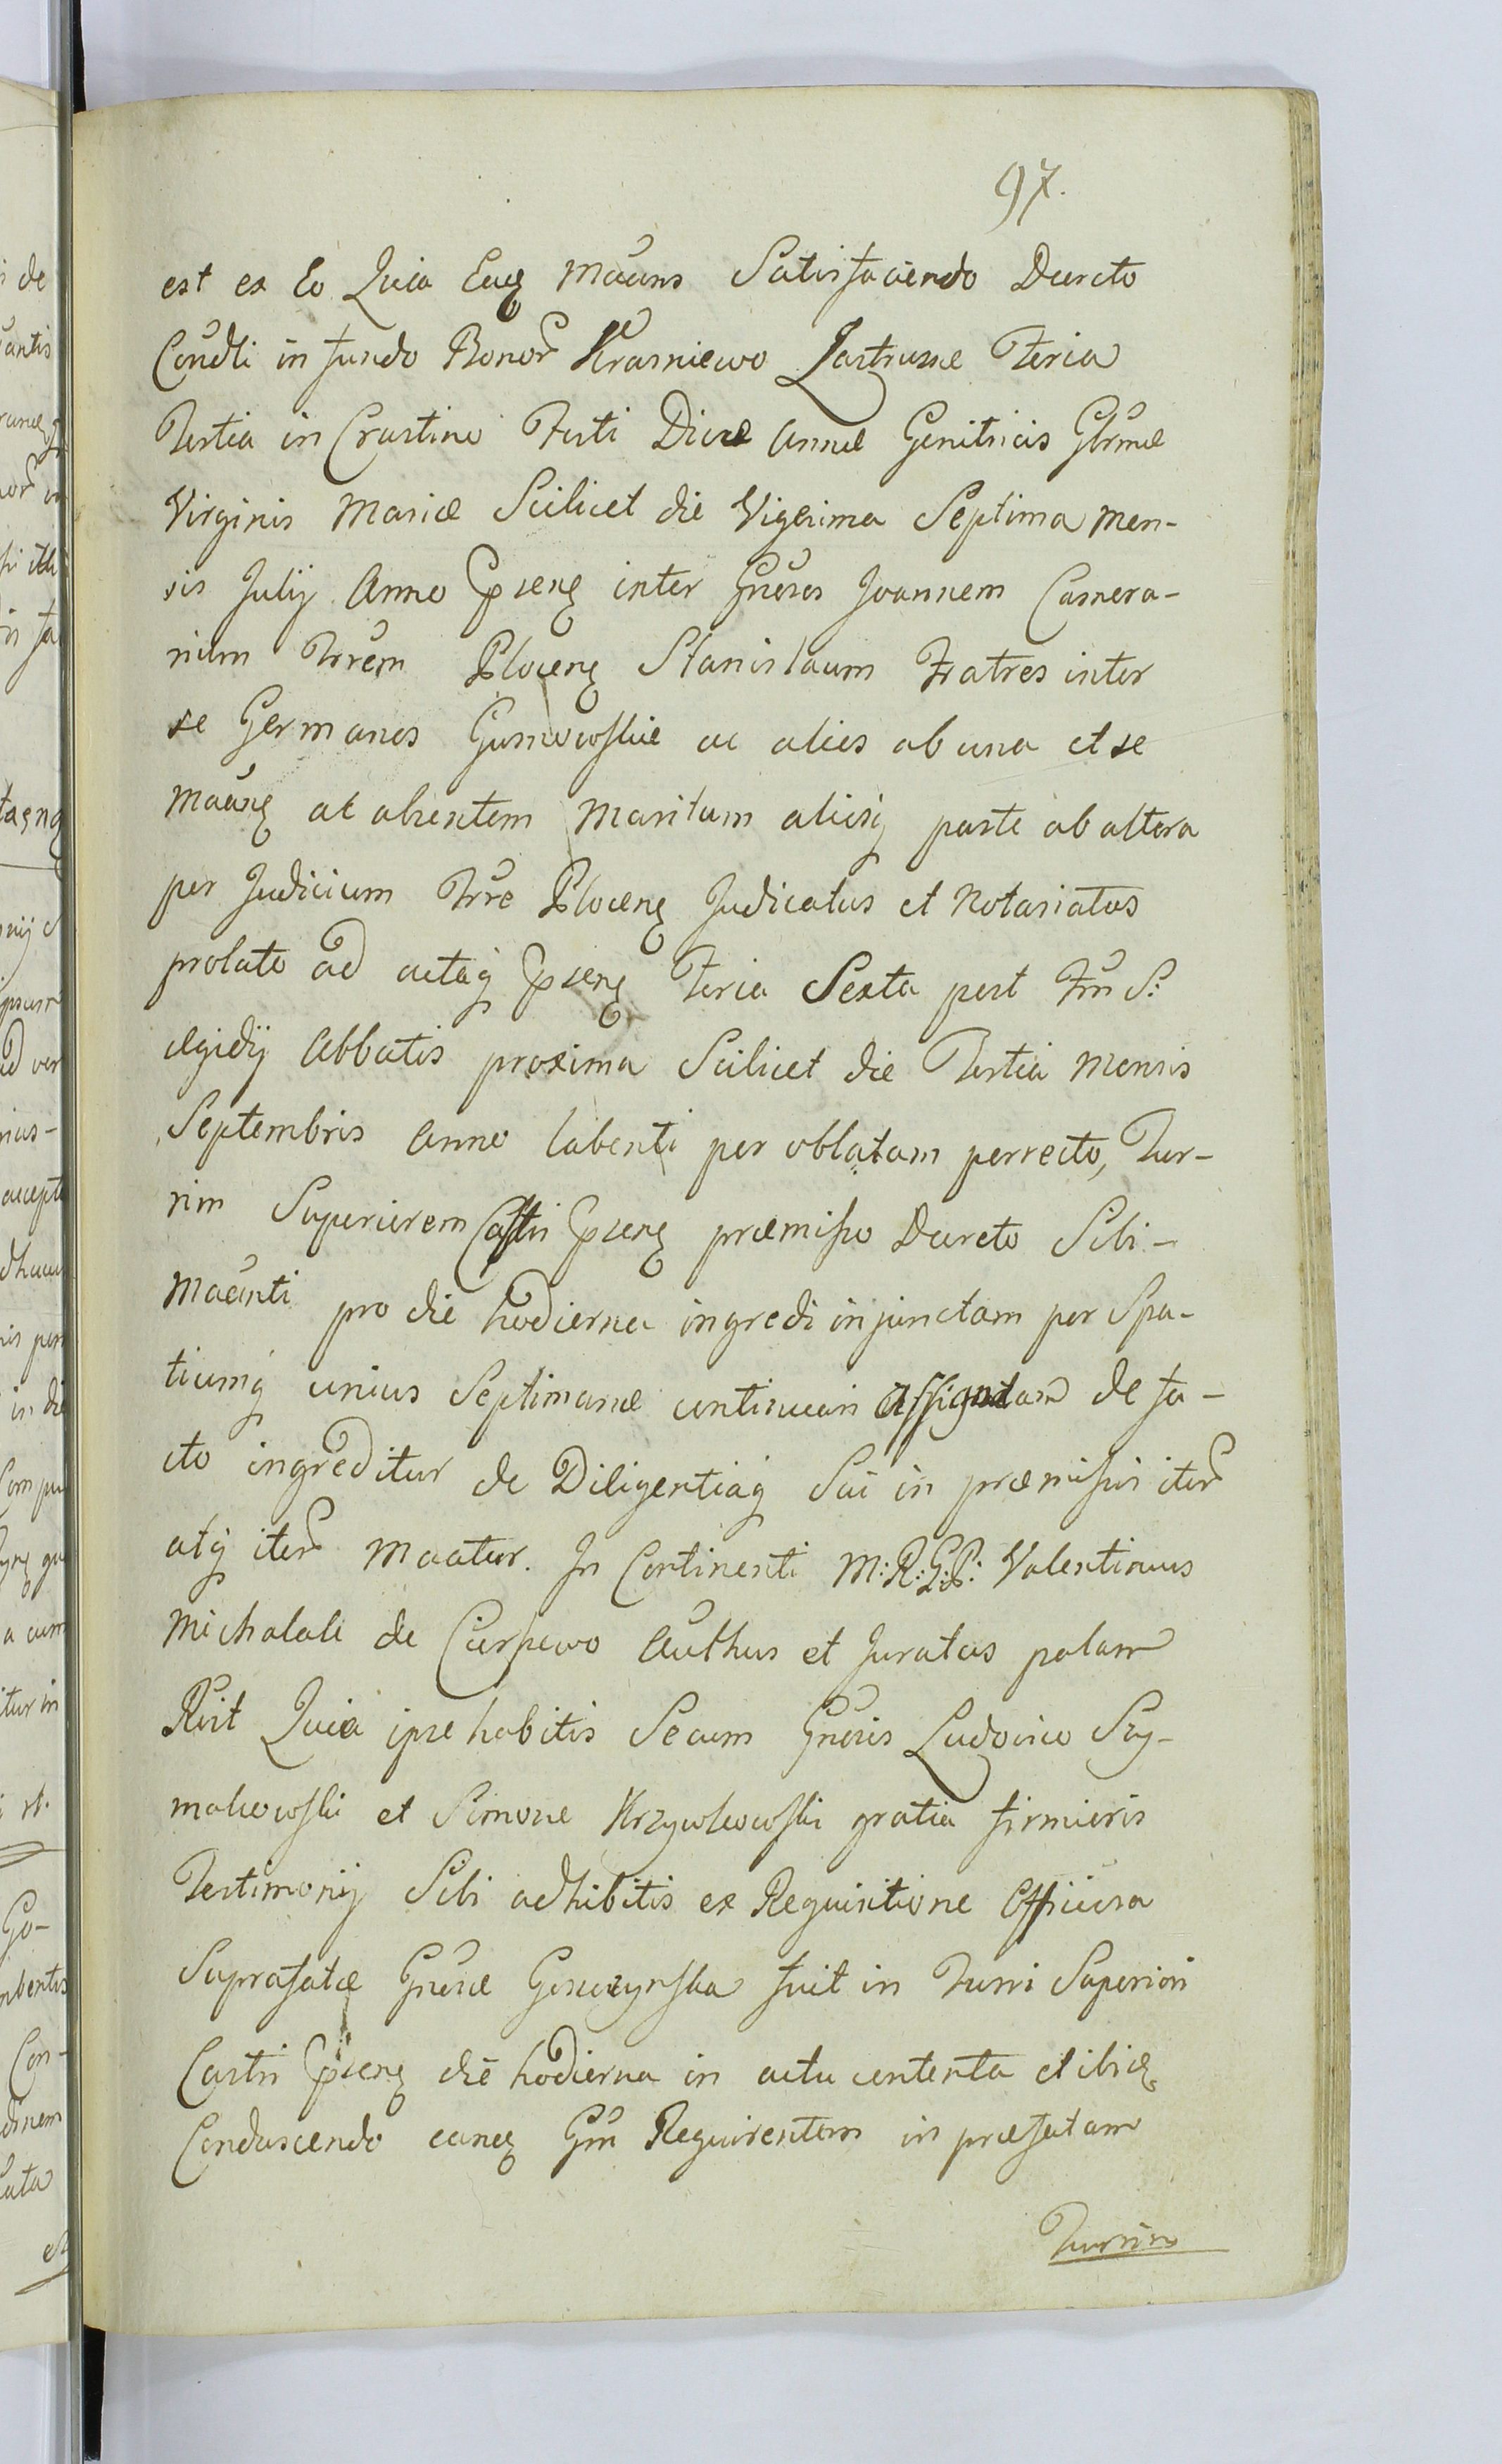 97.
est ex Eo Quia Eaq Maans Satisfaciendo Decreto
Condli in fundo Bonor Krasniewo Lastrume Feria
Tertia in Crastino Festi Divæ Annæ Genitricis Glrmæ
Virginis Mariæ Scilicet die Vigesima Septima Men-
sis Julij Anno Præsenq inter Gnesos Joannem Camera-
rium Trrem Plocenq Stanislaum Fratres inter
se Germanos Gumowskie ac alios ab una et se
Maanq ac absentem Maritum aliosq parte ab altera
per Judicium Trre Plocenq Judicatus et Notariatus
prolato ad actaq Præsenq Feria Sexta post Ftm S:
Ægidij Abbatis proxima Scilicet die Tertia Mensis
Septembris Anno labenti per oblatam perrecto, Tur-
rim Superiorem Castri Præsenq præmisso Decreto Sibi-
Maanti pro die hodierna ingredi injunctam per Spa-
tiumq unius Septimanæ continuari Assignatam de fa-
cto ingreditur de Diligentiaq Sui in præmissis iter
atq iter Maatur. In Continenti M:R:G:P: Valentinus
Michalak de Carszewo Authus et Juratus palam
Rsit Quia ipse habitis Secum Gnosis Ludovico Szy-
makowski et Simone Krzywkowski gratia firmioris
Testimonij Sibi adhibitis ex Requisitione Officiosa
Suprafatæ Gnosæ Goszczynska fuit in Turri Superiori
Castri Præsenq die hodierna in actu contenta et ibiq
Condascendo eanq Gm Requirentem in præfatam
Turrim